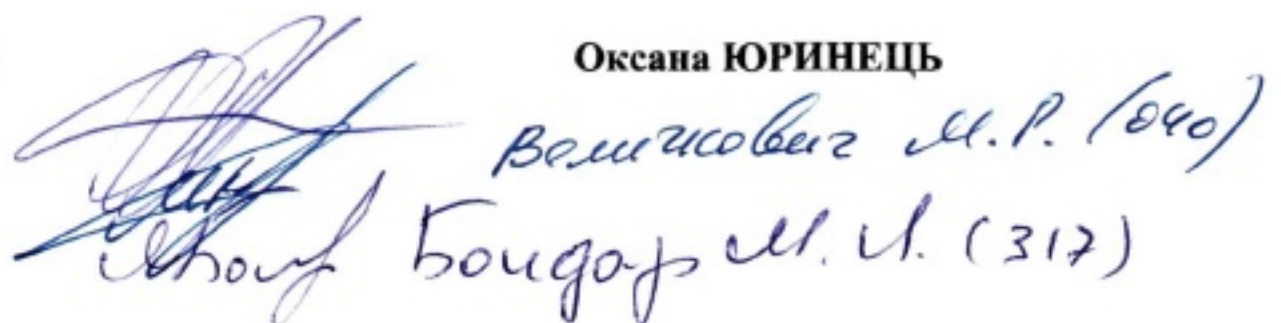 Оксана ЮРИНЕЦЬ
Величкович М.Р. (040)
Бондар М.Л. (317)